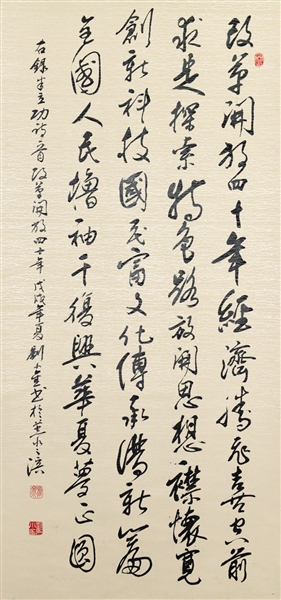 改革開放四十年經濟騰飛喜空前
求是探索特色路放開思想襟懷寬
創新科技國民富文化傳承譜新篇
全國人民擼袖干復興華夏夢正圓
右錄 立功詩一首改革開放四十年戊戌年夏劉 書於 水之濱